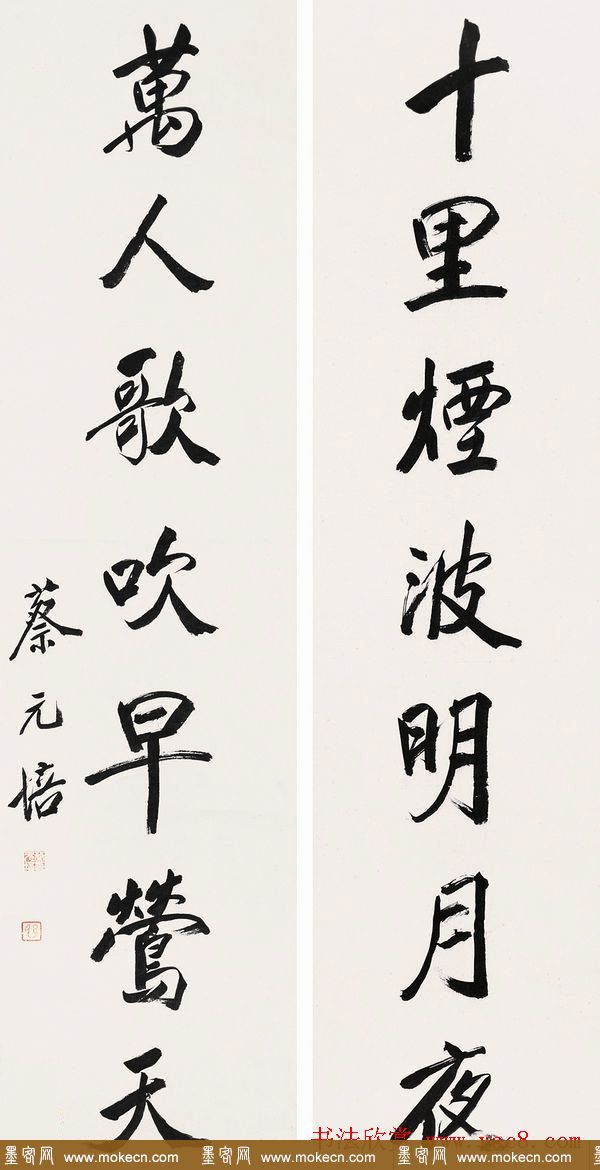 十里煙波明月夜
萬人歌吹早鶯天
蔡元培
书法欣赏 www.yac8.com
墨客网 www.mokecn.com 墨客网 www.mokecn.com 墨客网 www.mokecn.com